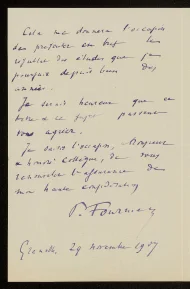 Cela me donnera l'occasion
de présenter en bref les
résultats des études que je
poursuis depuis bien des
années.
Je serais heureux que ce
titre et ce sujet puissent
vous agréer.
Je saisis l'occasion, Monsieur
et honoré collègue, de vous
renouveler l'assurance de
ma haute considération
P. Fourmarier
Grenoble 29 novembre 1907